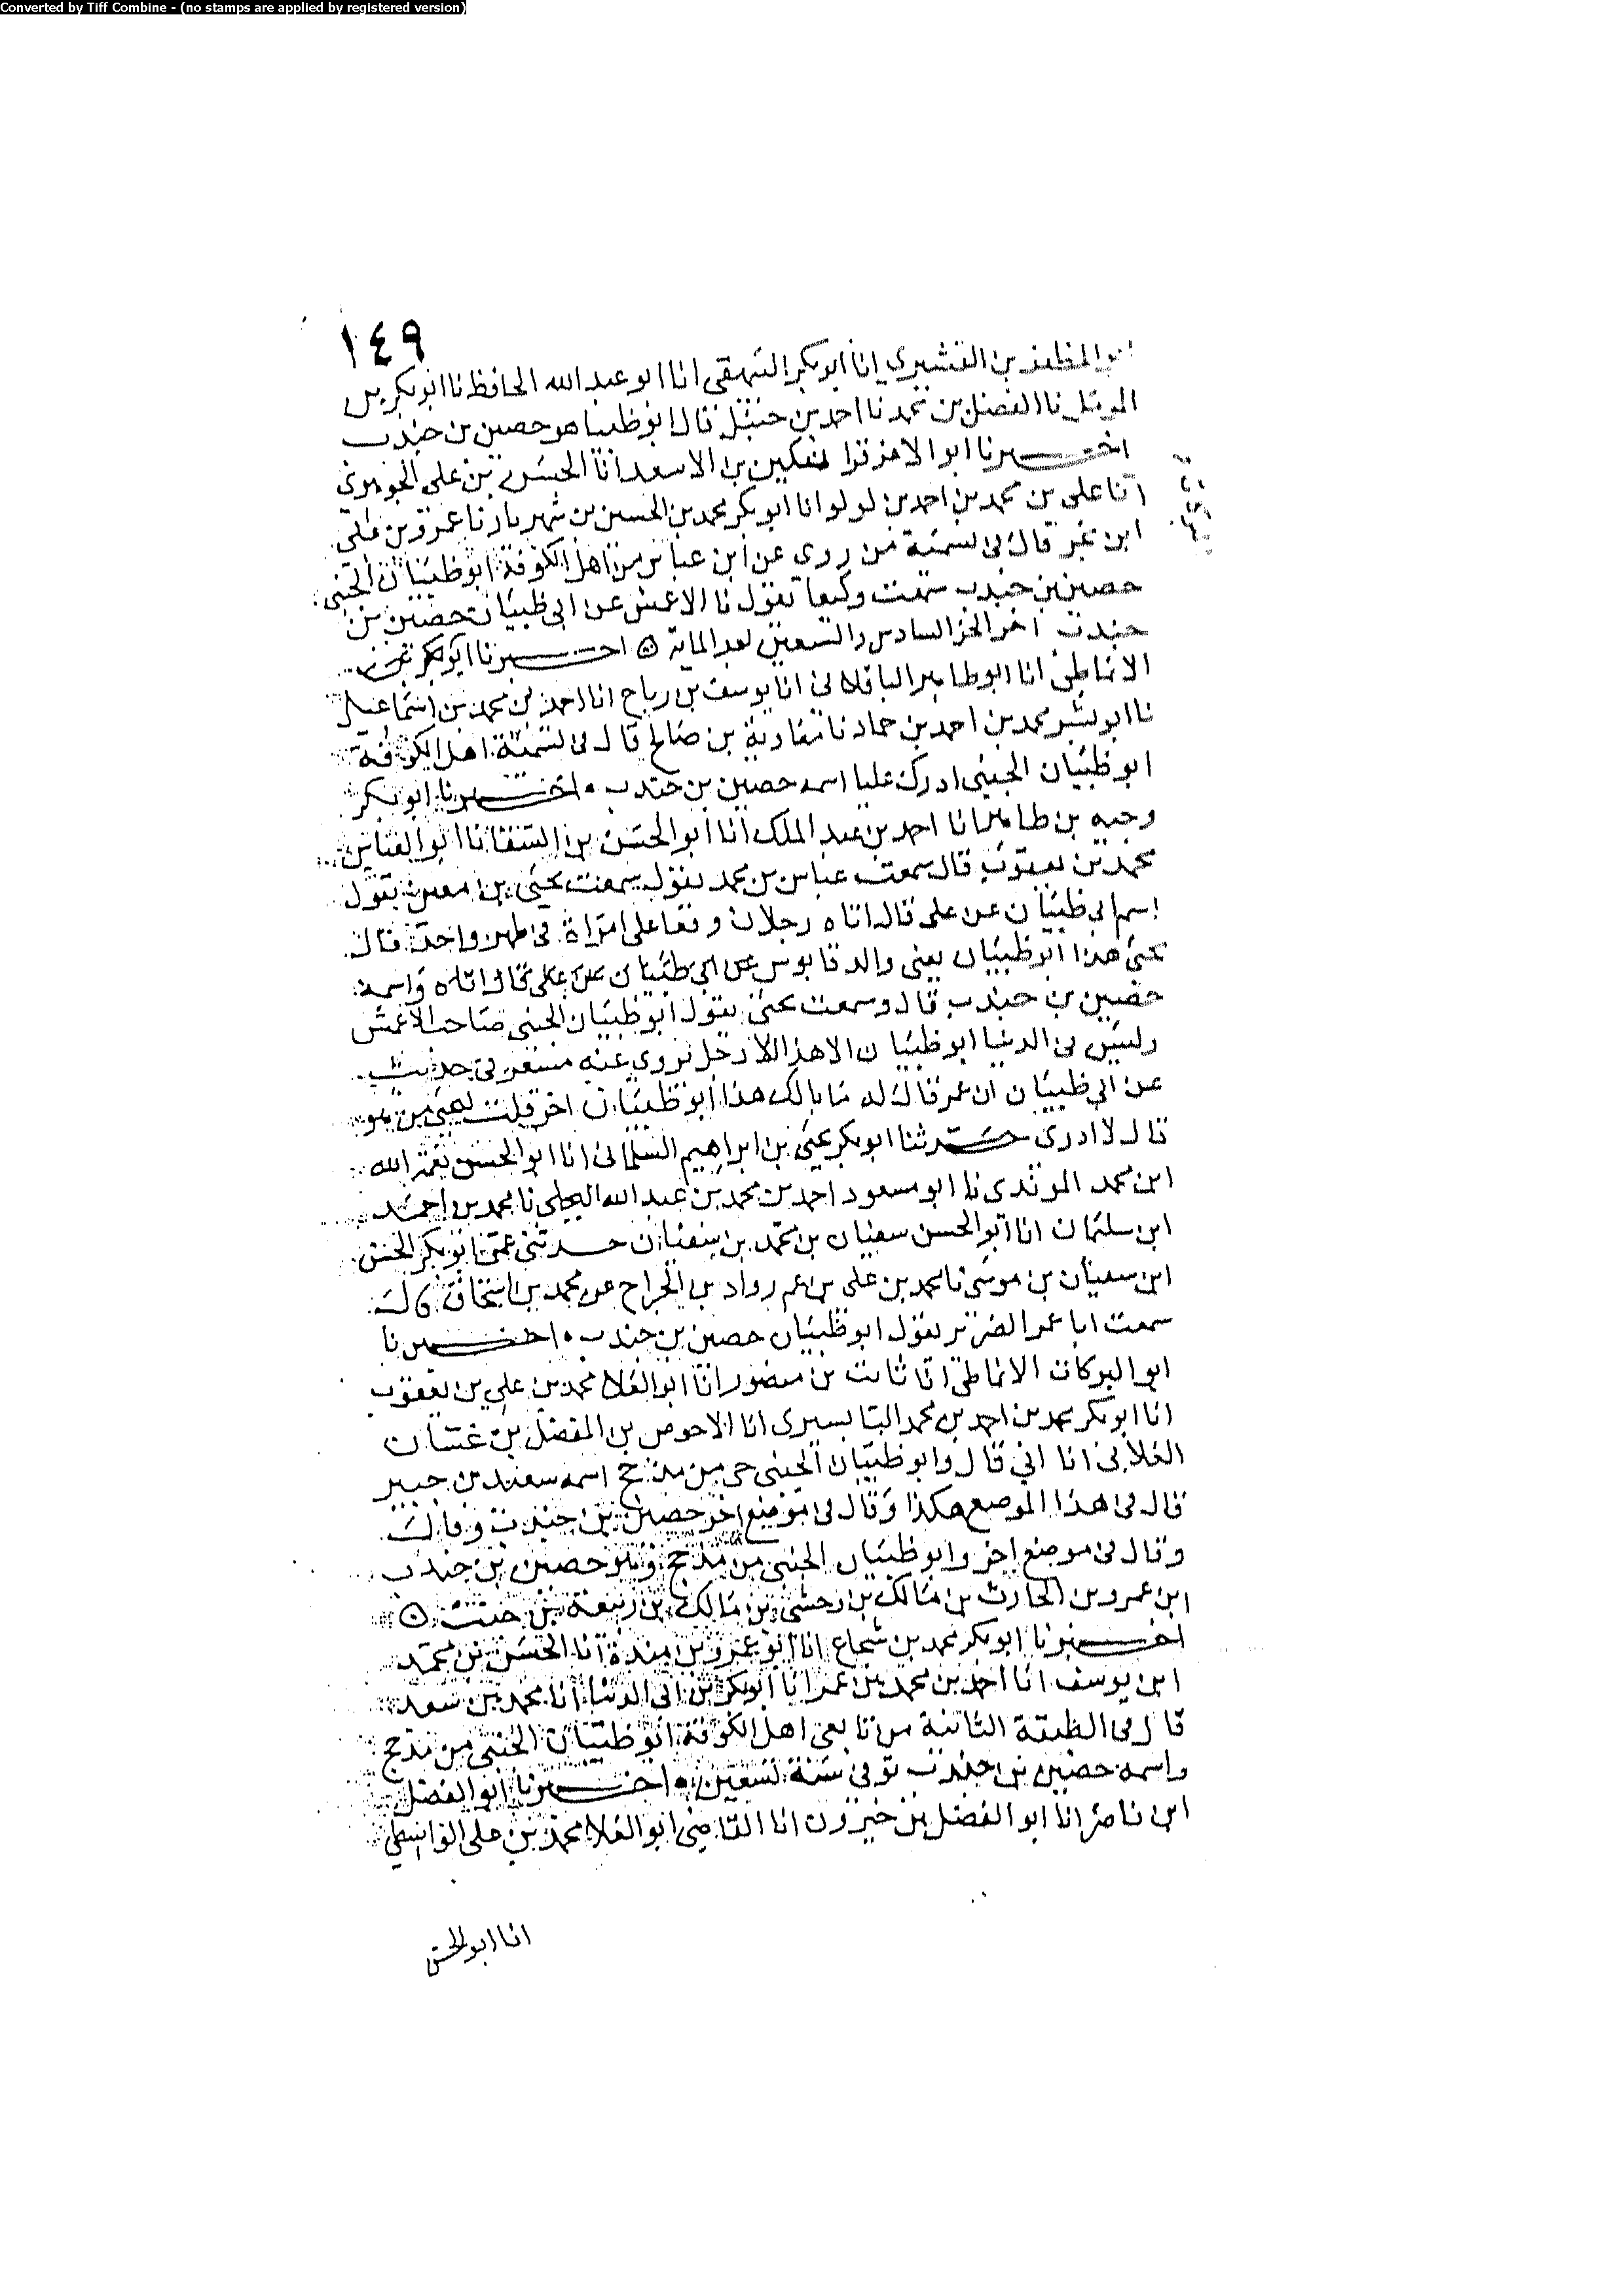 Converted by Tiff Combine - (no stamps are applied by registered version)
١٤٩
ابو المظفر بن القشيري انا ابو بكر البيهقي انا ابو عبد الله الحافظ نا ابو بكر بن
المومل نا الفضل بن محمد نا احمد بن حنبل قال ابو ظبيا هو حصين بن جندب
اخبرنا ابو الاعز قراتكين بن الاسعد انا الحسن بن علي الجوهري
انا علي بن محمد بن احمد بن لولو انا ابو بكر محمد بن الحسين بن شهريار نا عمرو بن علي
ابن بحر قال في تسمية من روى عن ابن عباس من اهل الكوفة ابو ظبيان الجنبي
حصين بن جندب سمعت وكيعا يقول نا الاعمش عن ابي ظبيان حصين بن
جندب اخر الجز السادس والتسعين بعد الماية اخبرنا ابو بكر
الانماطي انا ابو طاهر الباقلاني انا يوسف بن رباح انا احمد بن محمد بن اسماعيل
نا ابو بشر محمد بن احمد بن حماد نا معاوية بن صالح قال في تسمية اهل الكوفة
ابو ظبيان الجنبي ادرك عليا اسمه حصين بن جندب اخبرنا ابو بكر
وجيه بن طاهر انا احمد بن عبد الملك انا ابو الحسن بن السقا نا ابو العباس
محمد بن يعقوب قال سمعت عباس بن محمد يقول سمعت يحيى بن معين يقول
اسم ابي ظبيان عن علي قال اتاه رجلان وقعا على امراة في طهر واحد قال
يحيى هذا ابو ظبيان يعني والد قابوس عن ابي ظبيان عن علي قال اتاه واسمه
حصين بن جندب قال وسمعت يحيى يقول ابو ظبيان الجنبي صاحب الاعمش
وليس في الدنيا ابو ظبيان الا هذا الا رجل يروي عنه مسعر في حديث
عن ابي ظبيان ان عمر قال له ما بالك هذا ابو ظبيان اخر قلت ليحيى من هو
قال لا ادري حدثنا ابو بكر يحيى بن ابراهيم السلماني انا ابو الحسن نعمة الله
ابن محمد المرندي نا ابو مسعود احمد بن محمد بن عبد الله البجلي نا محمد بن احمد
ابن سليمان انا ابو الحسن سفيان بن محمد بن سفيان حدثني عمي ابو بكر الحسن
ابن سفيان بن موسى نا محمد بن علي بن عم رواد بن الجراح عن محمد بن اسحاق قال
سمعت ابا عمر الضرير يقول ابو ظبيان حصين بن جندب اخبرنا
ابو البركات الانماطي انا ثابت بن منصور انا ابو العلا محمد بن علي بن يعقوب
انا ابو بكر محمد بن احمد بن محمد البابسيري انا الاحوص بن المفضل بن غسان
الغلابي انا ابي قال وابو ظبيان الجنبي حي من مذحج اسمه سعيد بن جبير
قال في هذا الموضع هكذا وقال في موضع اخر حصين بن جندب وقال
وقال في موضع اخر وابو ظبيان الجنبي من مذحج وهو حصين بن جندب
ابن عمرو بن الحارث بن مالك بن وحشي بن مالك بن ربيعة بن جنب
اخبرنا ابو بكر محمد بن شجاع انا ابو عمرو بن مندة انا الحسن بن محمد
ابن يوسف انا احمد بن محمد بن عمر انا ابو بكر بن ابي الدنيا انا محمد بن سعد
قال في الطبقة الثانية من تابعي اهل الكوفة ابو ظبيان الجنبي من مذحج
واسمه حصين بن جندب توفي سنة تسعين اخبرنا ابو الفضل
ابن ناصر انا ابو الفضل بن خيرون انا القاضي ابو العلا محمد بن علي الواسطي
انا ابو الحسن